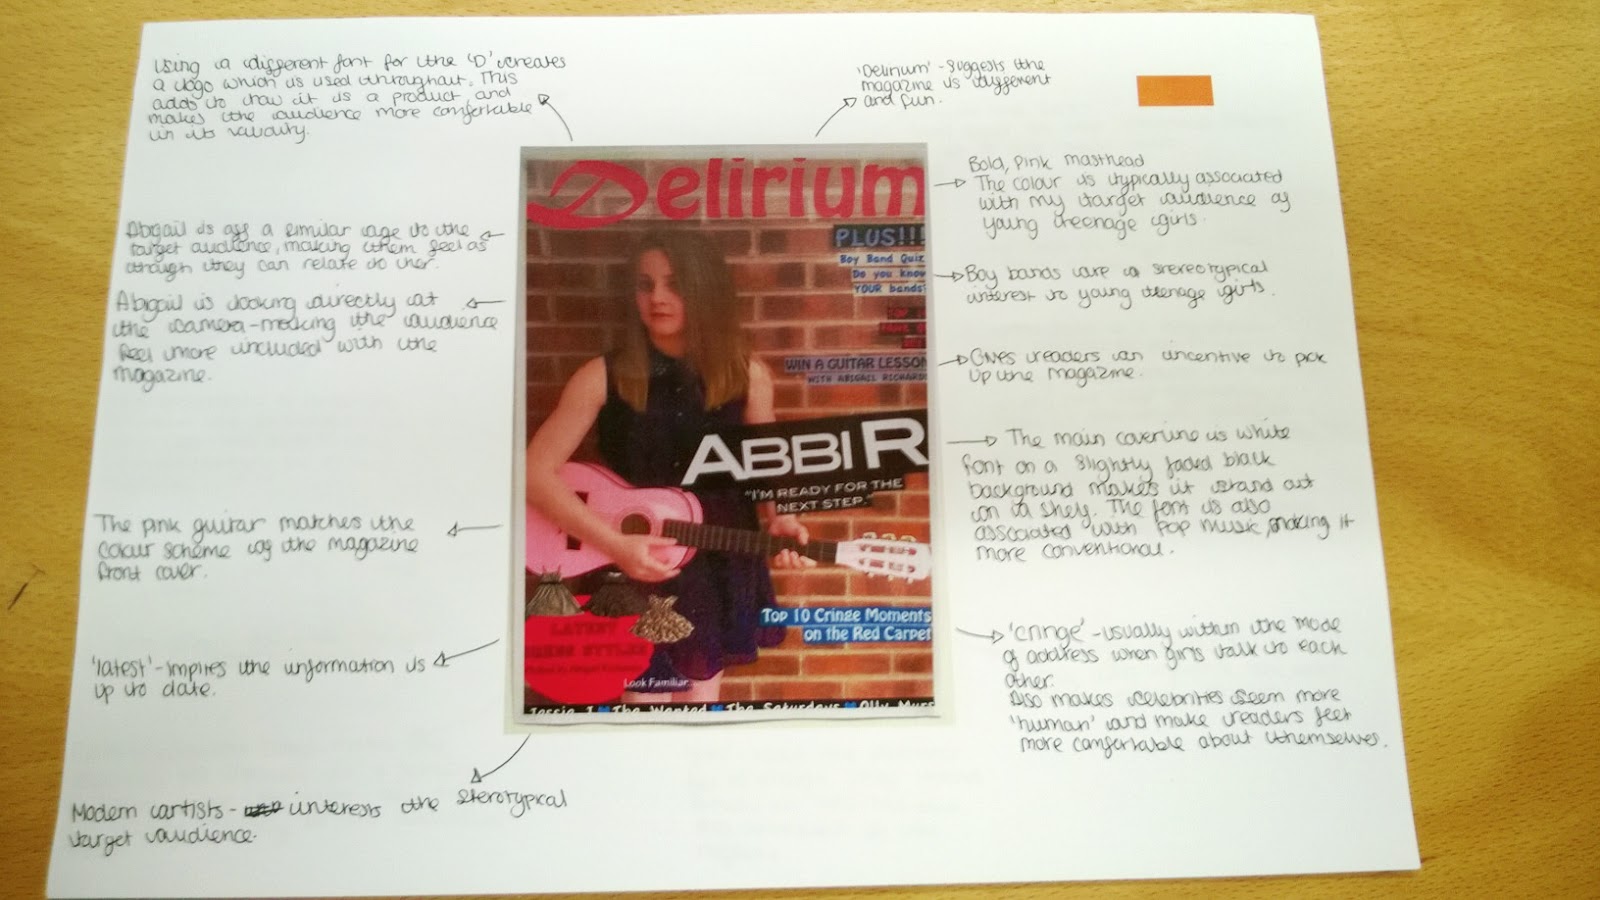 Using a different font for the 'D' creates
a logo which is used throughout. This
adds to how it is a product and
makes the audience more comfortable
in its validity.
'Delirium' - suggests the
magazine is different
and fun.
Abigail is of a similar age to the
target audience, making them feel as
though they can relate to her.
Abigail is looking directly at
the camera - making the audience
feel more included with the
magazine.
The pink guitar matches the
colour scheme of the magazine
front cover.
'latest' - implies the information is
up to date.
Modern artists - interests the sterotypical
target audience.
Delirium
PLUS!!!
Boy Band Quiz
Do you know
YOUR bands?
WIN A GUITAR LESSON
WITH ABIGAIL RICHARDS
ABBI R
"I'M READY FOR THE
NEXT STEP."
Top 10 Cringe Moments
on the Red Carpet
LATEST
DRESS STYLES
Look Familiar...
Jessie J The Wanted The Saturdays Olly Murs
Bold, pink masthead
The colour is typically associated
with my target audience of
young teenage girls.
Boy bands are a stereotypical
interest to young teenage girls.
Gives readers an incentive to pick
up the magazine.
The main coverline is white
font on a slightly faded black
background makes it stand out
on a shelf. The font is also
associated with pop music, making it
more conventional.
'cringe' - usually within the mode
of address when girls talk to each
other.
Also makes celebrities seem more
'human' and make readers feel
more comfortable about themselves.